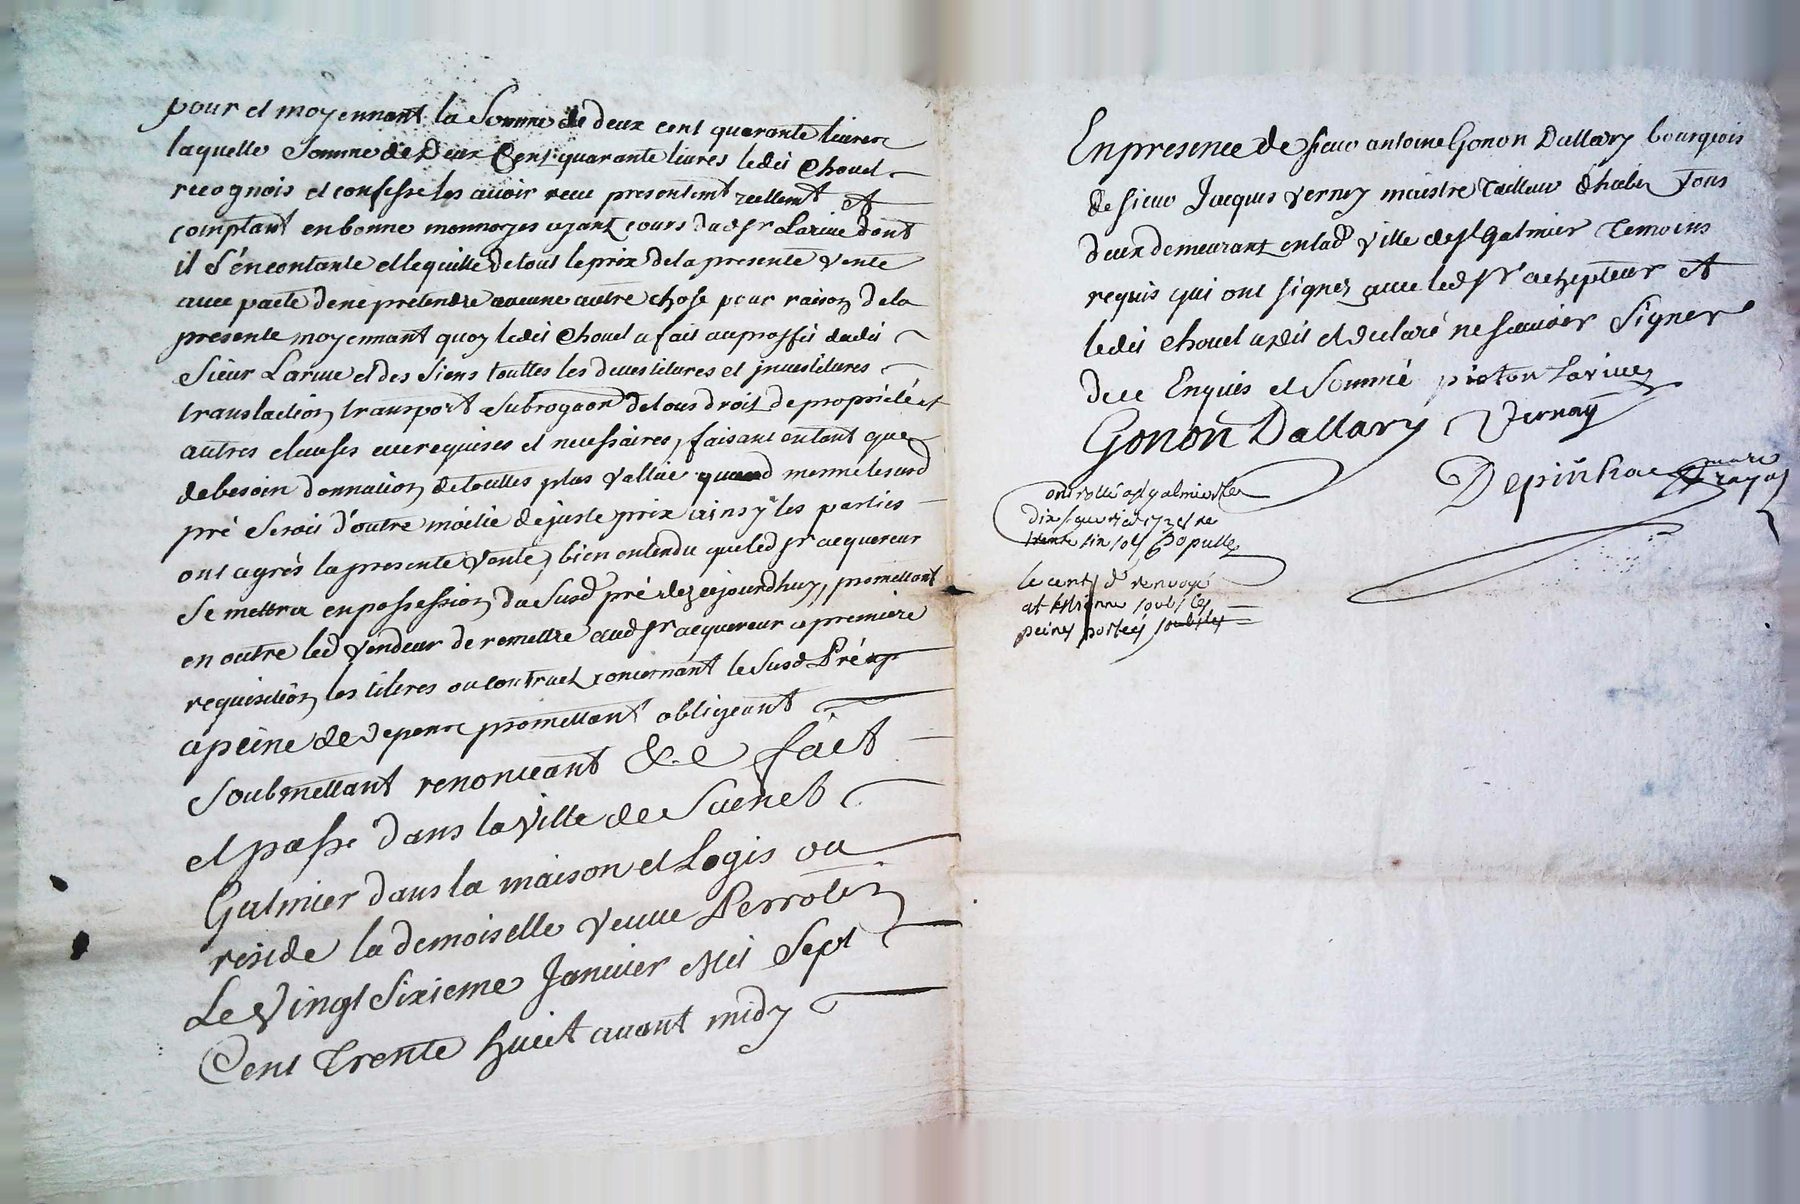 pour et moyennant la Somme de deux cent quarante livres
laquelle Somme de Deux Cent quarante livres ledit Chouel
recognois et confesse les avoir receu presentemt reellemt et
comptant en bonne monnoyes ayant cours dud sr Larive dont
il s'en contante et le quitte de tout le prix de la presente vente
avec pacte de ne pretendre aucune autre chose pour raison de la
presente moyennant quoy ledit Chouel a fait au proffit dudit
Sieur Larive et des siens touttes les devestitures et jnvestitures
translation transport subrogaon de tous droit de proprieté et
autres clauses requises et necessaires, faisant en tant que
de besoin donnation de touttes plus vallue quand mesme le susd
pré serois d'outre moitié de juste prix ainsy les parties
ont agrés la presente vente, bien entendu que led sr acquereur
se mettra en possession du susd pré dez cejourdhuy, promettant
en outre led vendeur de remettre aud sr acquereur a premiere
requisition les titeres ou contract concernant le susd Pré
a peine de depens promettant obligeant
soubmettant renonceant &c fait
et passé dans la ville de Saenct
Galmier dans la maison et Logis ou
reside la demoiselle veuve Perrotin
Le Vingt Sixieme Janvier Mil Sept
Cent Trente huict avant midy
En presence de sieur antoine Gonon Dallary bourgeois
de sieur Jacques Verney maistre Tailleur d'habits Tous
deux demeurant en lad ville de st Galmier Temoins
requis qui ont signez avec led sr achepteur et
ledit Chouel a dit et declaré ne scavoir Signer
de ce Enquis et Sommé pioton Larive
Gonon Dallary Vernay
Depinhac
st galmier le
dix
sols Populle
le cent d renvoyé
soubs les
peines portées